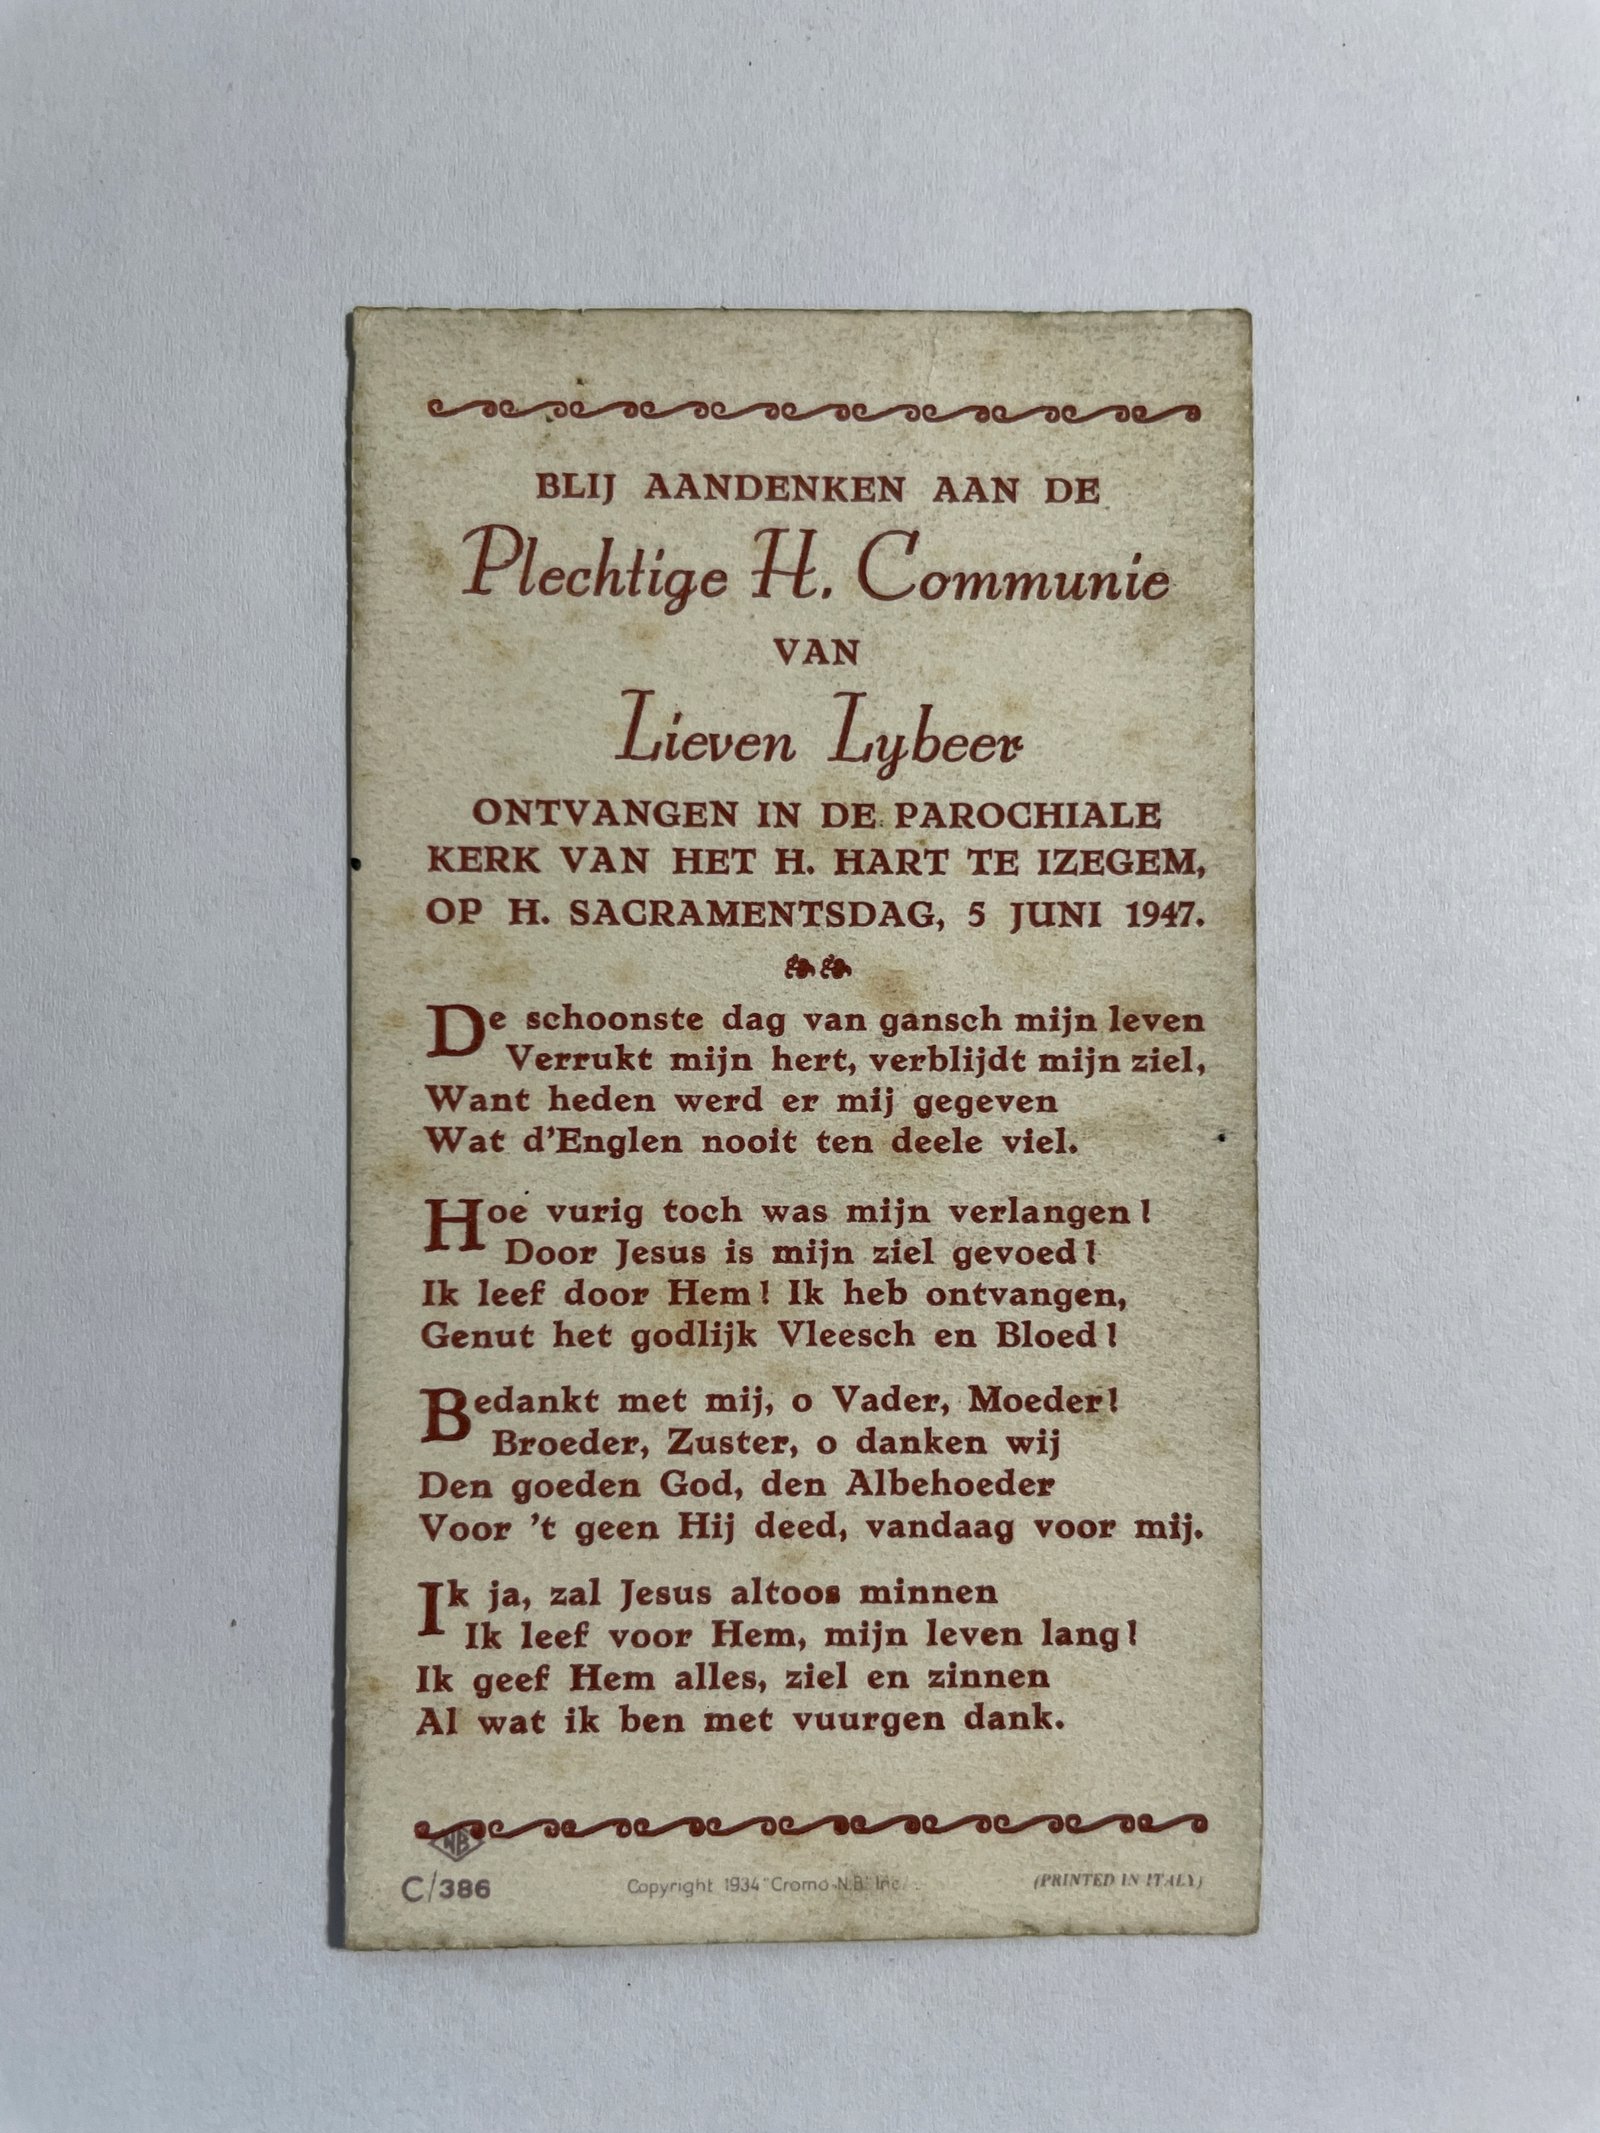 BLIJ AANDENKEN AAN DE
Plechtige H. Communie
VAN
Lieven Lybeer
ONTVANGEN IN DE PAROCHIALE
KERK VAN HET H. HART TE IZEGEM,
OP H. SACRAMENTSDAG, 5 JUNI 1947.
De schoonste dag van gansch mijn leven
Verrukt mijn hert, verblijdt mijn ziel,
Want heden werd er mij gegeven
Wat d'Englen nooit ten deele viel.
Hoe vurig toch was mijn verlangen!
Door Jesus is mijn ziel gevoed!
Ik leef door Hem! Ik heb ontvangen,
Genut het godlijk Vleesch en Bloed!
Bedankt met mij, o Vader, Moeder!
Broeder, Zuster, o danken wij
Den goeden God, den Albehoeder
Voor 't geen Hij deed, vandaag voor mij.
Ik ja, zal Jesus altoos minnen
Ik leef voor Hem, mijn leven lang!
Ik geef Hem alles, ziel en zinnen
Al wat ik ben met vuurgen dank.
NB
C/386 Copyright 1934 "Cromo-N.B." Inc. (PRINTED IN ITALY)